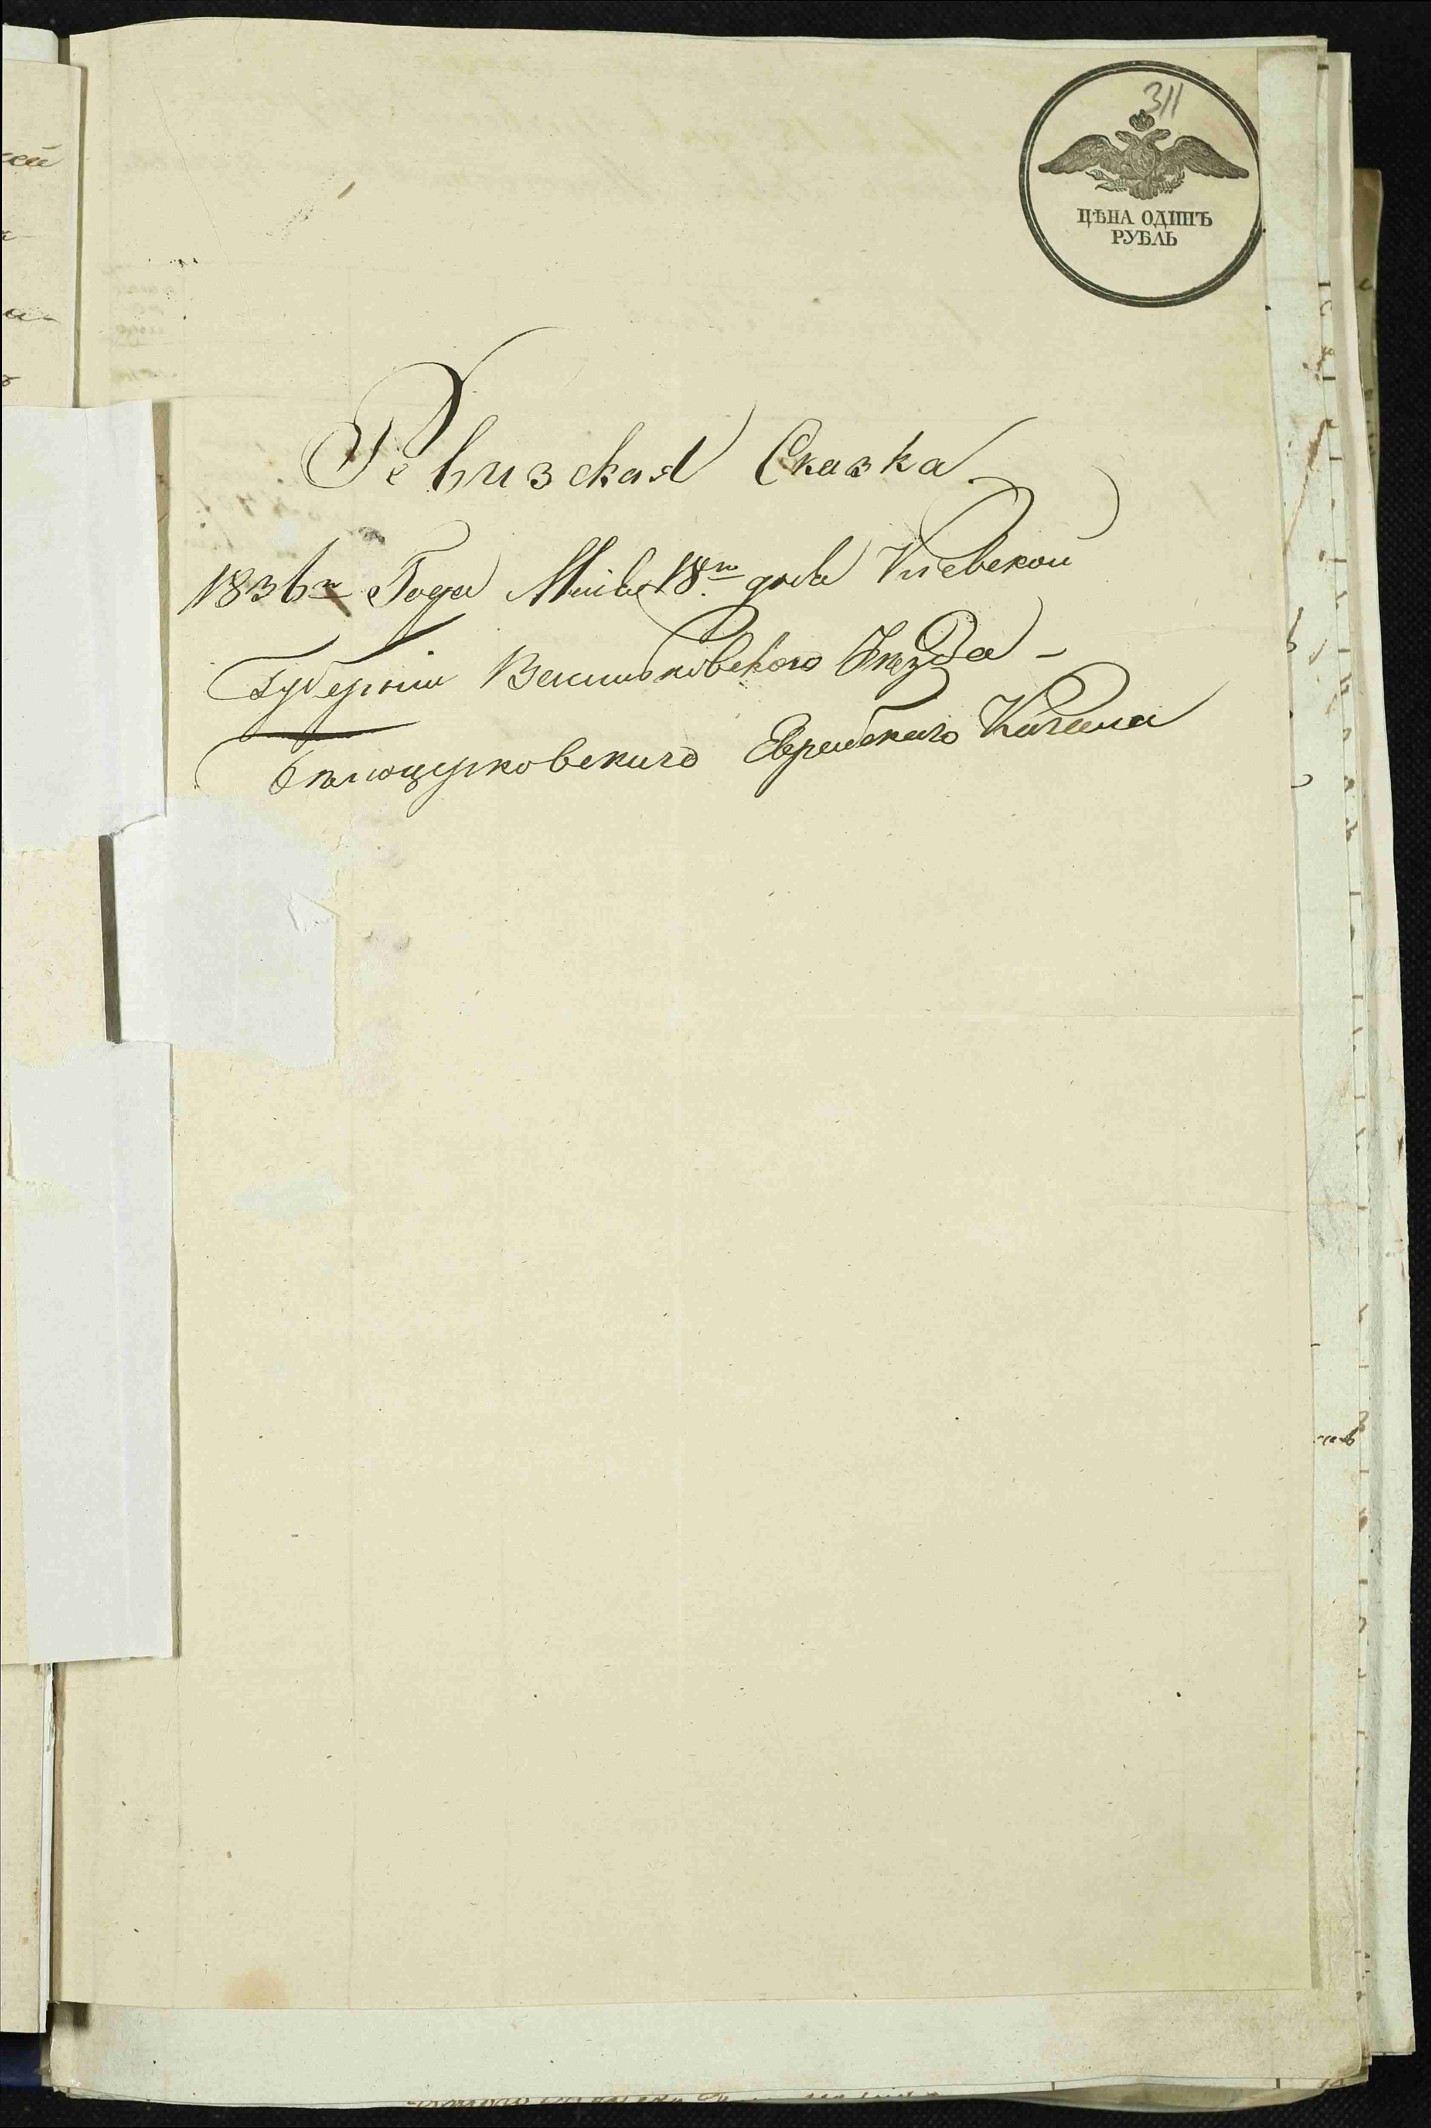 311
ЦѢНА ОДИНЪ
РУБЛЬ
Ревизская Сказка
1836го Года Маія 18го дня Кіевской
Губерніи Васильковского Уѣзда -
Бѣлоцерковскаго Еврейскаго Кагала